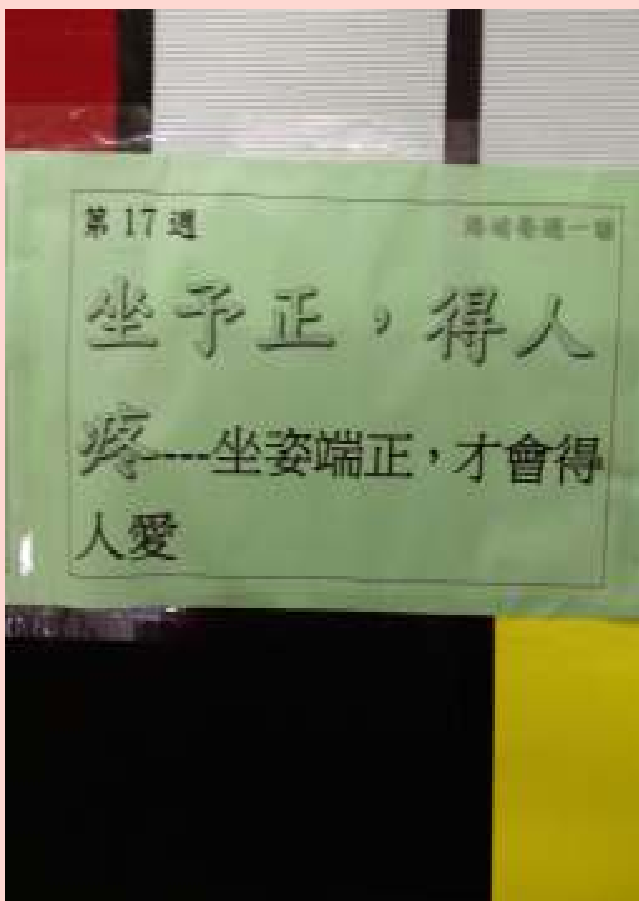 第 17 週
坐予正，得人
疼----坐姿端正，才會得
人愛